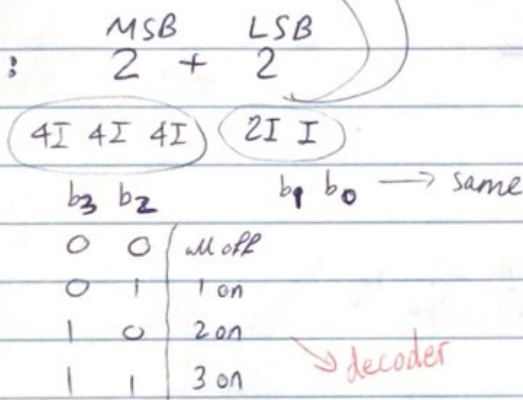 MSB LSB
: 2 + 2
4I 4I 4I 2I I
b3 b2 b1 b0 → same
0 0 all off
0 1 1 on
1 0 2 on
1 1 3 on
→ decoder